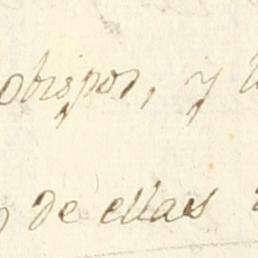 obispos, y
de ellas